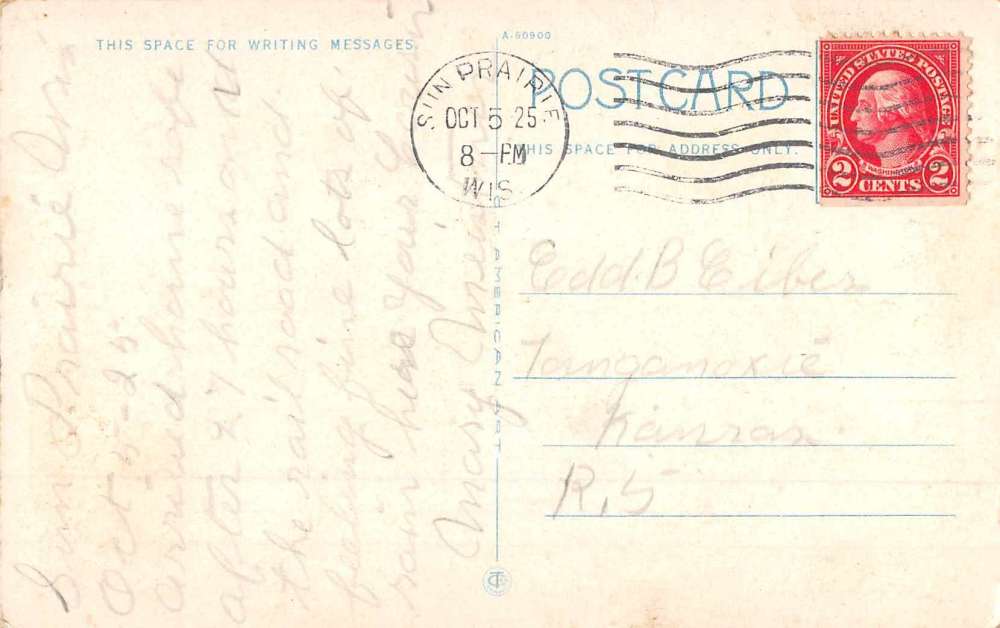 THIS SPACE FOR WRITING MESSAGES.
A-60900
POSTCARD
THIS SPACE FOR ADDRESS ONLY.
SUN PRAIRIE
OCT 5 25
8-PM
WIS.
UNITED STATES POSTAGE
WASHINGTON
2 CENTS 2
Sun Prairie Wis
Oct-5-25
arrived home safe
after 27 hours at
the railroad and
feeling fine lots of
rain here your Cousin
Mary
Edd. B Eiben
Tonganoxie
Kansas
R, 5
ART AMERICAN ART
CT